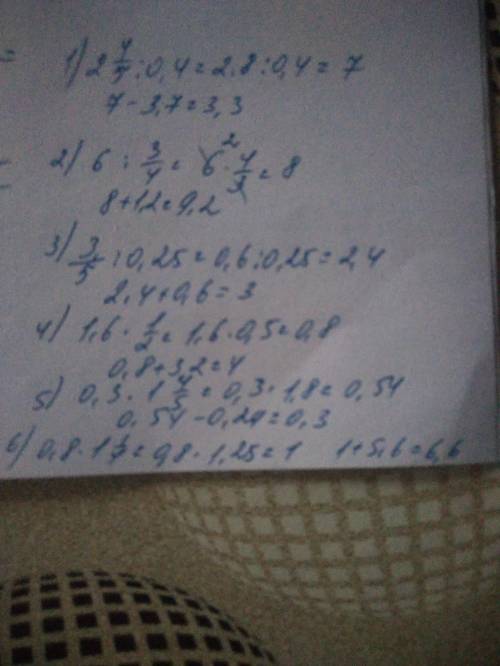 1) 2 4/5 : 0,4 = 2.8 : 0,4 = 7
7 - 3,7 = 3,3
2) 6 : 3/4 = 6 2 · 4/3 = 8
8 + 1,2 = 9,2
3) 3/5 : 0,25 = 0,6 : 0,25 = 2,4
2,4 + 0,6 = 3
4) 1,6 · 1/2 = 1,6 · 0,5 = 0,8
0,8 + 3,2 = 4
5) 0,3 · 1 4/5 = 0,3 · 1,8 = 0,54
0,54 - 0,24 = 0,3
6) 0,8 · 1 1/4 = 0,8 · 1,25 = 1 1 + 5,6 = 6,6